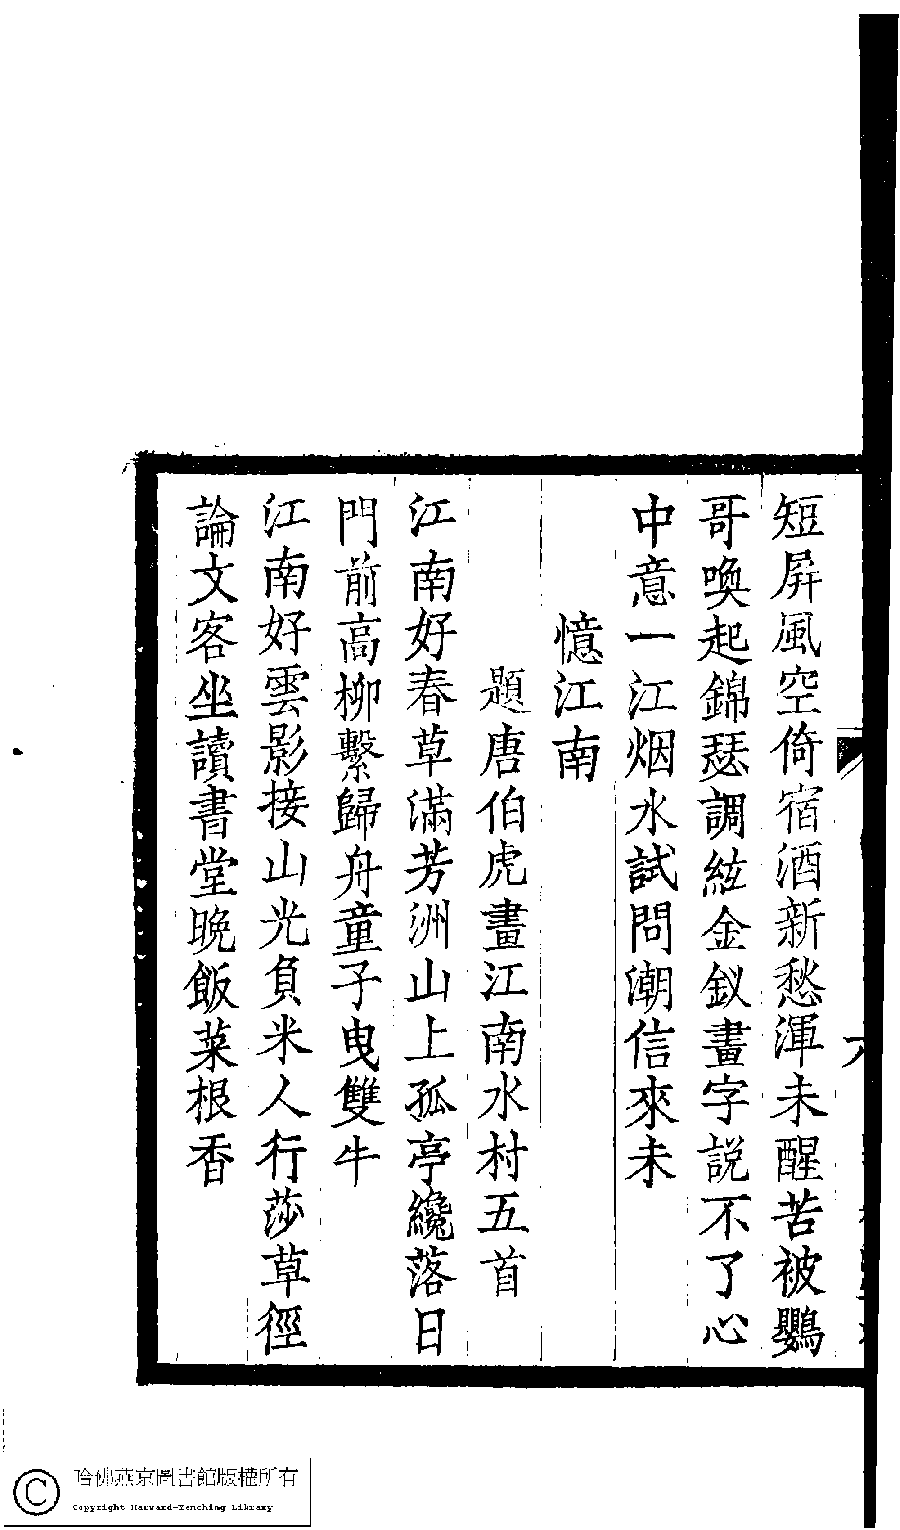 短屏風空倚宿酒新愁渾未醒苦被鸚
哥喚起錦瑟調絃金釵畫字説不了心
中意一江烟水試問潮信來未
憶江南
題唐伯虎畫江南水村五首
江南好春草滿芳洲山上孤亭纔落日
門前高柳繫歸舟童子曳雙牛
江南好雲影接山光負米人行莎草徑
論文客坐讀書堂晚飯菜根香
哈佛燕京圖書館版權所有
Copyright Harvard-Yenching Library